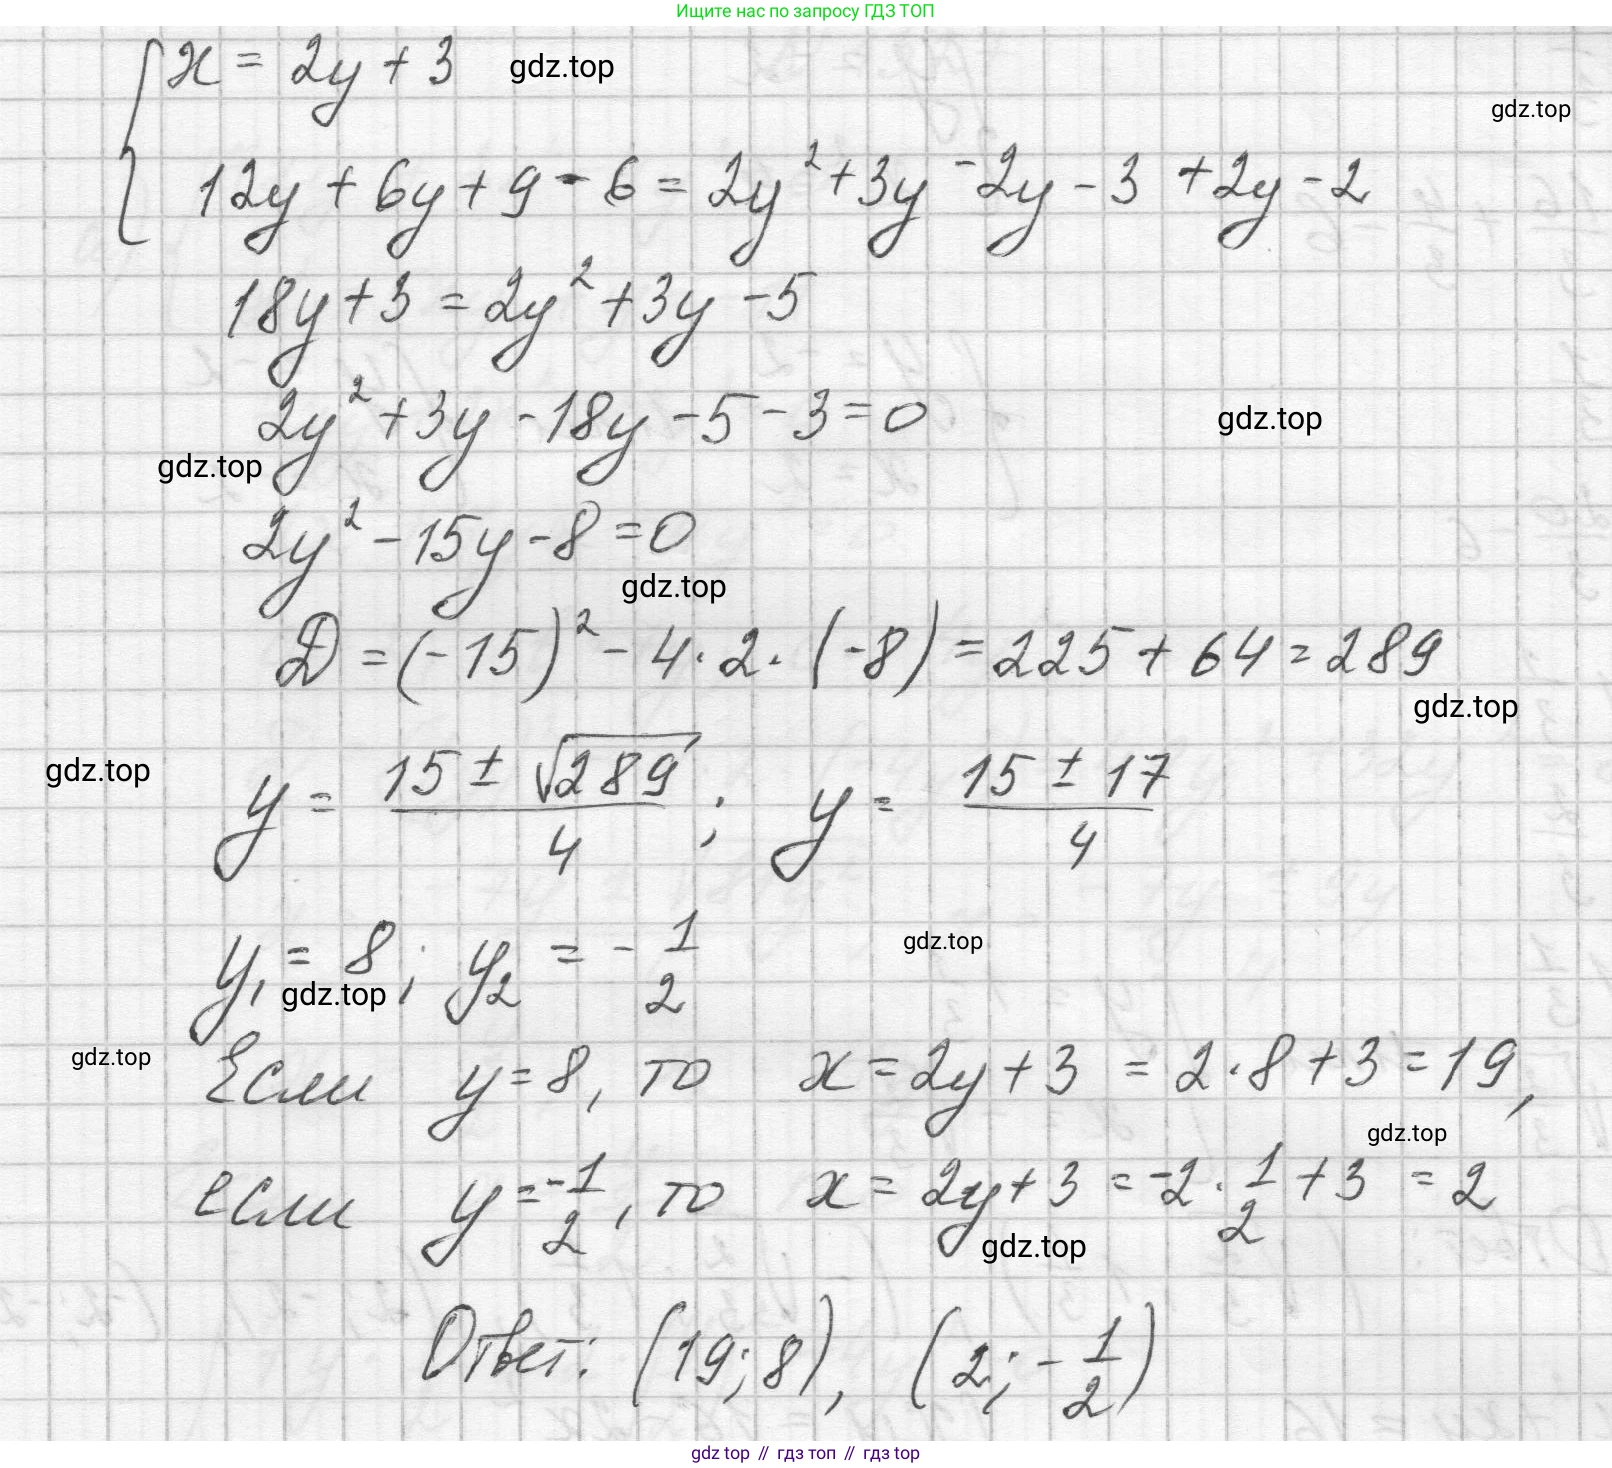 Ищите нас по запросу ГДЗ ТОП
x = 2y + 3 gdz.top
gdz.top
12y + 6y + 9 - 6 = 2y² + 3y - 2y - 3 + 2y - 2
18y + 3 = 2y² + 3y - 5
2y² + 3y - 18y - 5 - 3 = 0 gdz.top
gdz.top
2y² - 15y - 8 = 0
gdz.top
D = (-15)² - 4 · 2 · (-8) = 225 + 64 = 289
gdz.top
gdz.top
y = (15 ± √289)/4 ; y = (15 ± 17)/4
y₁ = 8 ; y₂ = - 1/2 gdz.top
gdz.top
gdz.top
Если y = 8, то x = 2y + 3 = 2 · 8 + 3 = 19,
gdz.top
если y = -1/2, то x = 2y + 3 = -2 · 1/2 + 3 = 2
gdz.top
Ответ: (19; 8), (2; - 1/2)
gdz top // гдз топ // гдз top